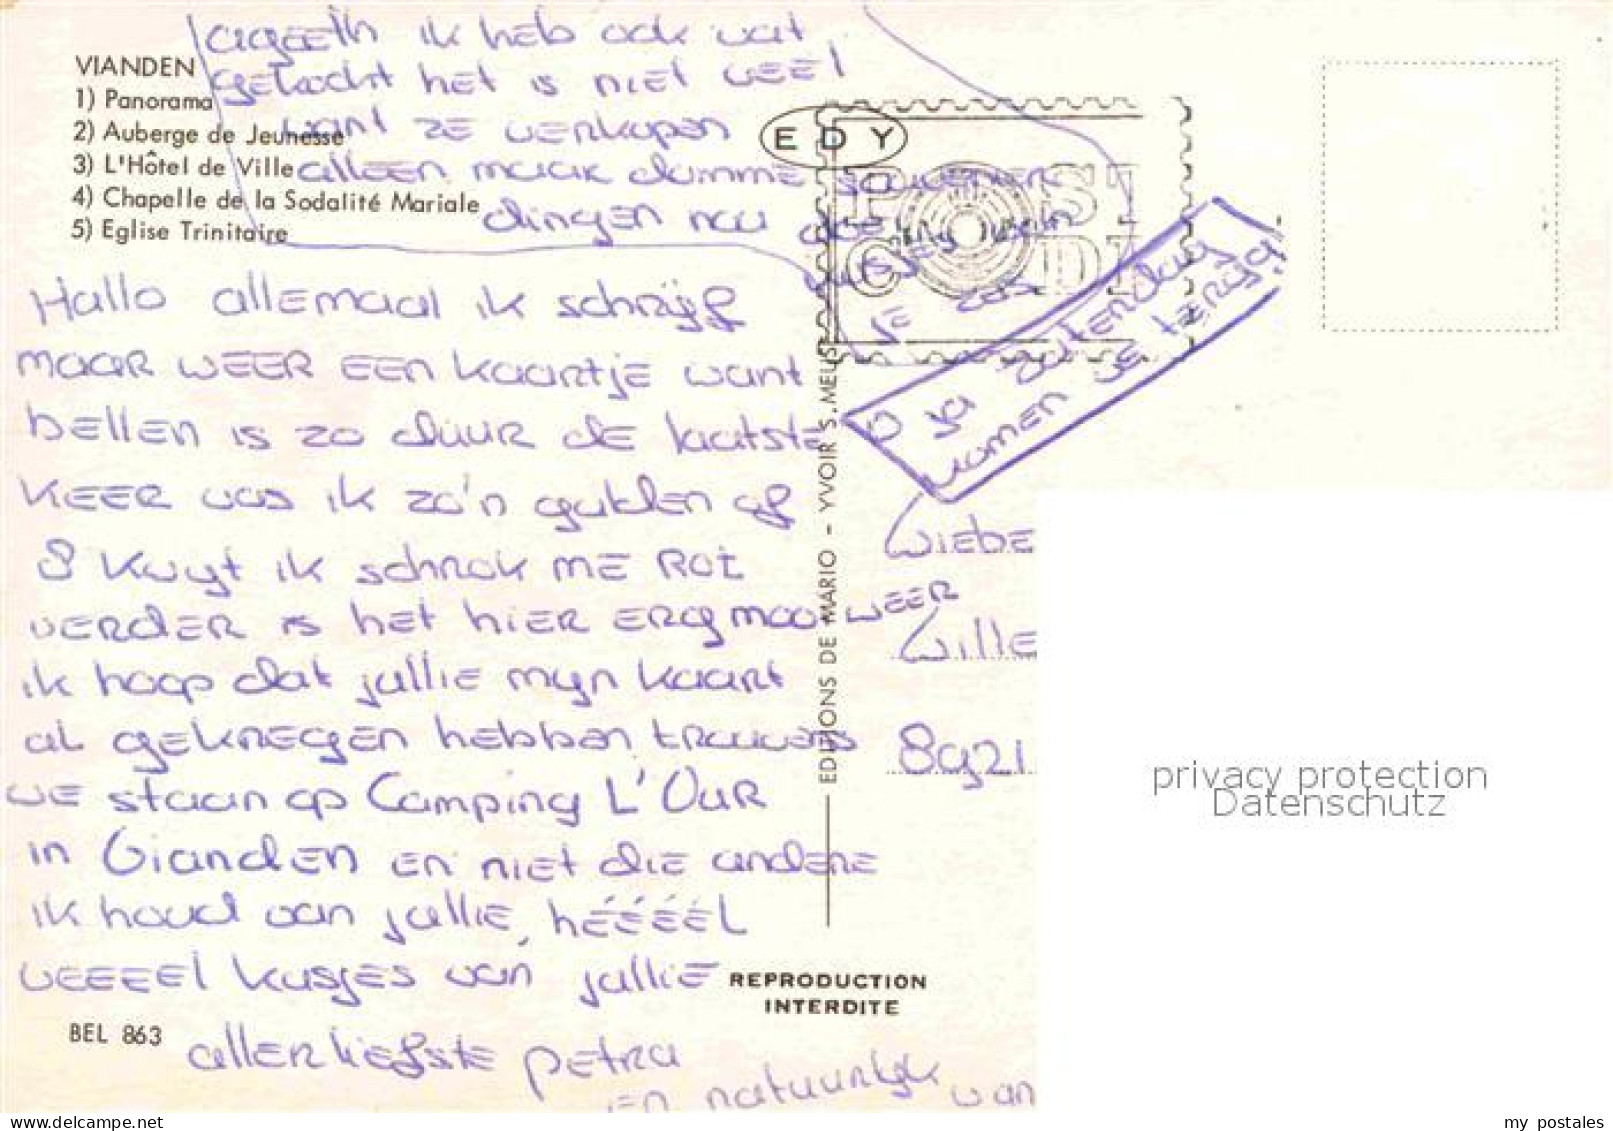 ageeth ik heb ook wat
gekocht het is niet veel
want ze verkopen
alleen maar domme souvenier
dingen nou doe
kusjes
VIANDEN
1) Panorama
2) Auberge de Jeunesse
3) L'Hôtel de Ville
4) Chapelle de la Sodalité Mariale
5) Eglise Trinitaire
EDY
POST
CODE
Hallo allemaal ik schrijf
maar weer een kaartje want
bellen is zo duur de laatste
keer was ik zo'n gulden of
8 kwyt ik schrok me rot
verder is het hier erg mooi weer
ik hoop dat jullie myn kaart
al gekregen hebben trouwens
we staan op Camping L'Our
in Vianden en niet die andere
ik houd van jullie, héééél
veeeel kusjes van jullie
allerliefste petra
en natuurlijk van
BEL 863
EDITIONS DE MARIO - YVOIR S.MEUSE
REPRODUCTION
INTERDITE
ja zaterdag
komen we terug!
Wiebe
Wille
8921
privacy protection
Datenschutz
delcampe.net
my_postales